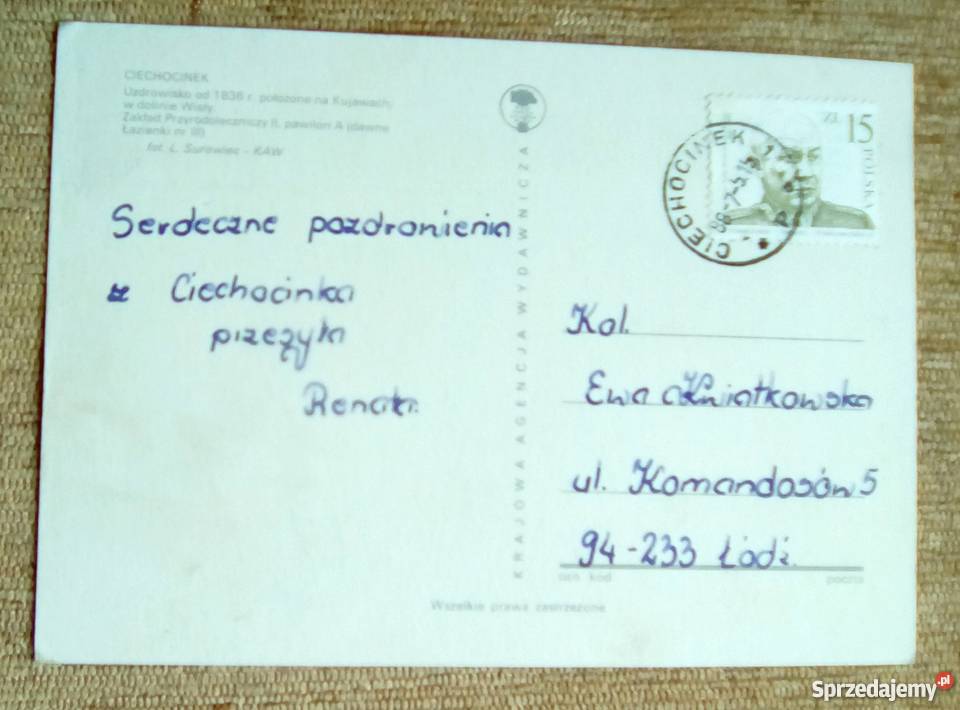 CIECHOCINEK
Uzdrowisko od 1836 r. położone na Kujawach,
w dolinie Wisły.
Zakład Przyrodoleczniczy II, pawilon A (dawne
Łazienki nr III)
fot. L. Surowiec - KAW
Serdeczne pozdrowienia
z Ciechocinka
przesyła
Renata
KRAJOWA AGENCJA WYDAWNICZA
ZŁ 15
POLSKA
CIECHOCINEK 1
Kol.
Ewa Kwiatkowska
ul. Komandosów 5
94-233 Łódź.
kod
poczta
Wszelkie prawa zastrzeżone
Sprzedajemy.pl